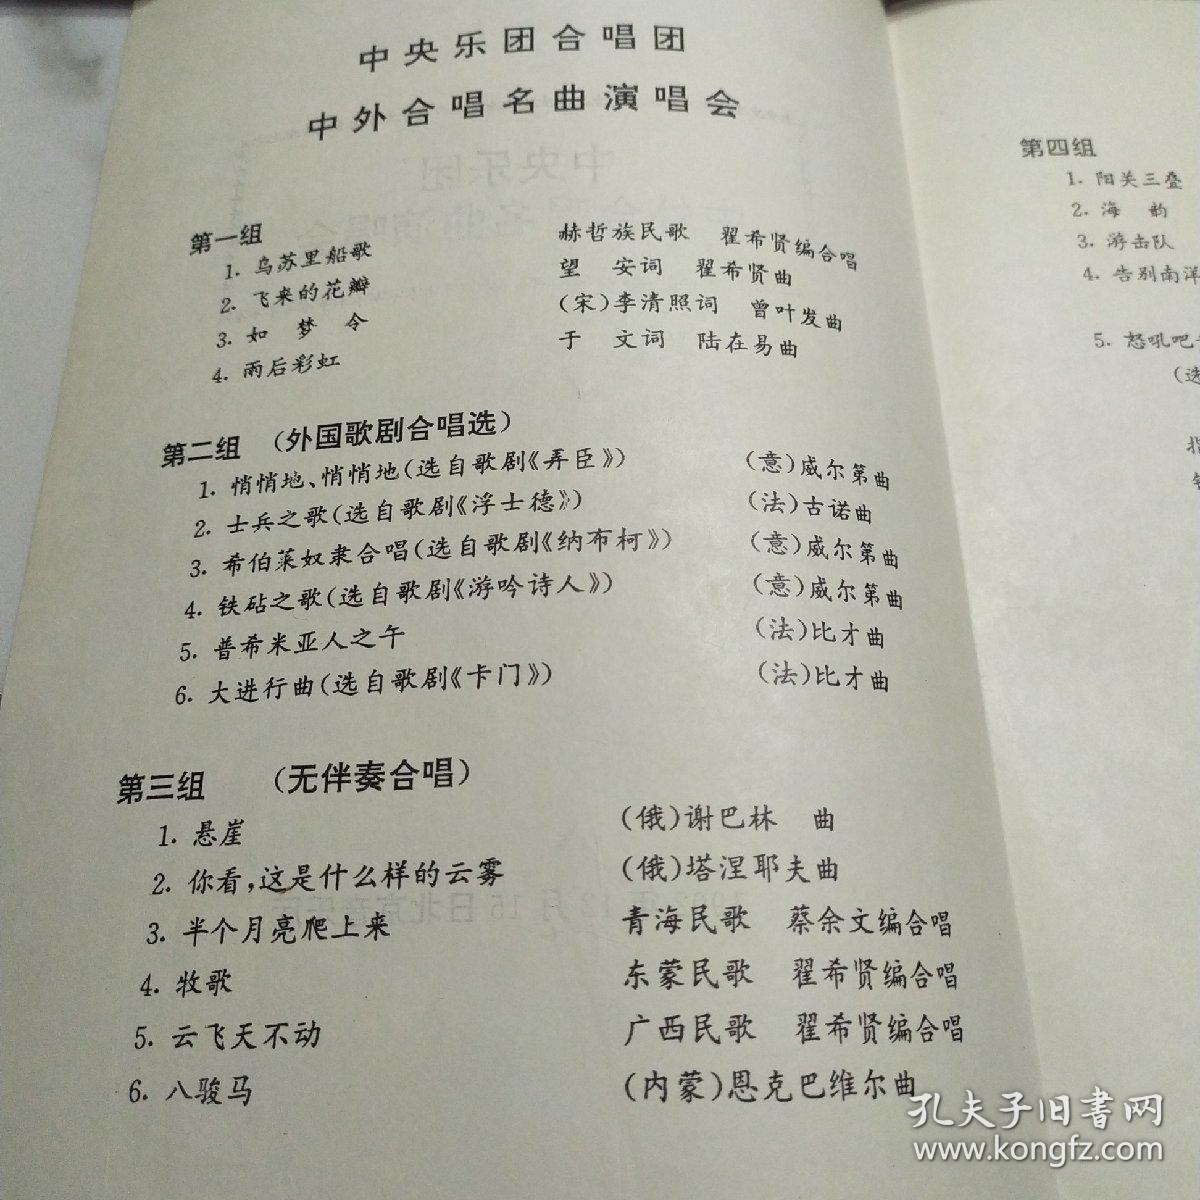 中央乐团合唱团
中外合唱名曲演唱会
第一组
1. 乌苏里船歌 赫哲族民歌 翟希贤编合唱
2. 飞来的花瓣 望 安词 翟希贤曲
3. 如 梦 令 (宋)李清照词 曾叶发曲
4. 雨后彩虹 于 文词 陆在易曲
第二组 (外国歌剧合唱选)
1. 悄悄地、悄悄地(选自歌剧《弄臣》) (意)威尔第曲
2. 士兵之歌(选自歌剧《浮士德》) (法)古诺曲
3. 希伯莱奴隶合唱(选自歌剧《纳布柯》) (意)威尔第曲
4. 铁砧之歌(选自歌剧《游吟诗人》) (意)威尔第曲
5. 普希米亚人之午 (法)比才曲
6. 大进行曲(选自歌剧《卡门》) (法)比才曲
第三组 (无伴奏合唱)
1. 悬崖 (俄)谢巴林 曲
2. 你看,这是什么样的云雾 (俄)塔涅耶夫曲
3. 半个月亮爬上来 青海民歌 蔡余文编合唱
4. 牧歌 东蒙民歌 翟希贤编合唱
5. 云飞天不动 广西民歌 翟希贤编合唱
6. 八骏马 (内蒙)恩克巴维尔曲
第四组
1. 阳关三叠
2. 海 韵
3. 游击队
4. 告别南洋
5. 怒吼吧
(选
孔夫子旧书网
www.kongfz.com